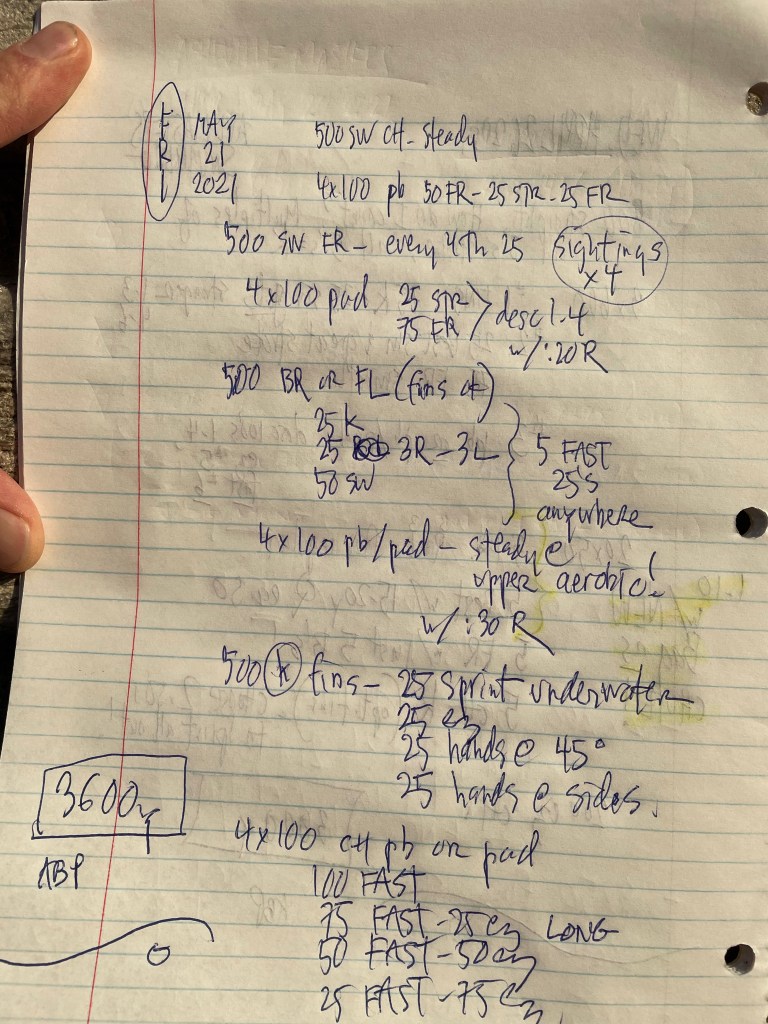 FRI MAY 21 2021
500 SW CH - steady
4x100 pb 50 FR - 25 STR - 25 FR
500 SW FR - every 4th 25 sightings x 4
4x100 pad 25 STR
75 FR } desc 1-4
w/ :20 R
500 BR or FL (fins ok)
25 K
25 3R - 3L } 5 FAST
50 SW 25s
anywhere
4x100 pb/pad - steady @
upper aerobic!
w/ :30 R
500 K fins - 25 sprint underwater
25 ez
25 hands @ 45°
25 hands @ sides.
3600y
4x100 CH pb or pad
ABP
100 FAST
75 FAST - 25 ez LONG
50 FAST - 50 ez
25 FAST - 75 ez